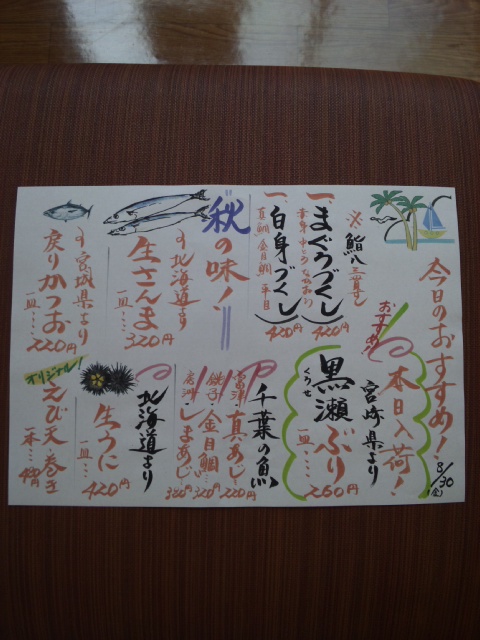 今日のおすすめ!
8/30
(金)
※鮨八三貫尽し
一、まぐろづくし
420円
一、白身づくし
真鯛 金目鯛 平目
420円
秋の味!
北海道より
生さんま
一皿…
320円
宮城県より
戻りかつお
一皿…
220円
おすすめ!
本日入荷!
宮崎県より
黒瀬ぶり
くろせ
一皿…
260円
千葉の魚
富津・真あじ…
220円
銚子・金目鯛…
320円
しまあじ…
320円
北海道より
生うに
一皿…
420円
オリジナル!
えび天巻き
一本…